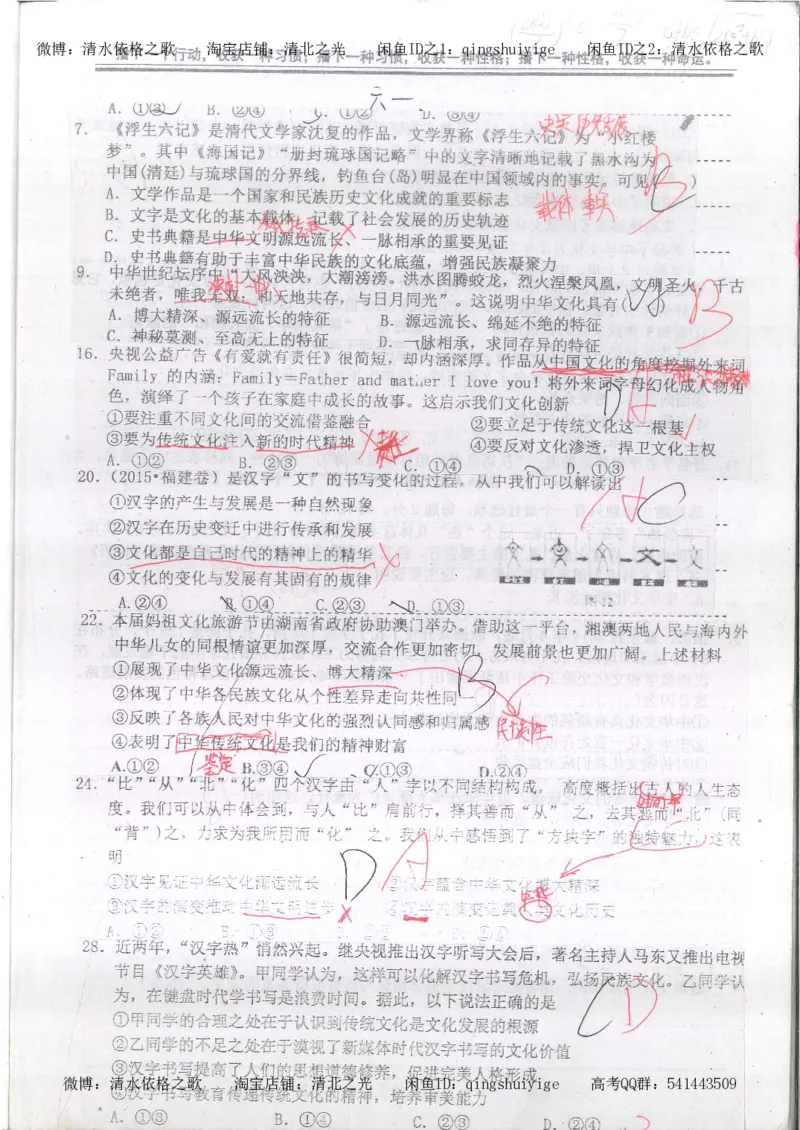 微博：清水依格之歌 淘宝店铺：清北之光 闲鱼ID之1：qingshuiyige 闲鱼ID之2：清水依格之歌
播下一个行动，收获一种习惯；播下一种习惯，收获一种性格；播下一种性格，收获一种命运。
六一
A. ①③ B. ②④ C. ①② D. ③④
7. 《浮生六记》是清代文学家沈复的作品，文学界称《浮生六记》为“小红楼
梦”。其中《海国记》“册封琉球国记略”中的文字清晰地记载了黑水沟为
中国(清廷)与琉球国的分界线，钓鱼台(岛)明显在中国领域内的事实。可见( )
A. 文学作品是一个国家和民族历史文化成就的重要标志
载体
B. 文字是文化的基本载体，记载了社会发展的历史轨迹
C. 史书典籍是中华文明源远流长、一脉相承的重要见证
D. 史书典籍有助于丰富中华民族的文化底蕴，增强民族凝聚力
B
C
9. 中华世纪坛序中“大风泱泱，大潮滂滂。洪水图腾蛟龙，烈火涅槃凤凰，文明圣火，千古
未绝者，唯我无双；和天地共存，与日月同光”。这说明中华文化具有
A. 博大精深、源远流长的特征 B. 源远流长、绵延不绝的特征
C. 神秘莫测、至高无上的特征 D. 一脉相承，求同存异的特征
B
16. 央视公益广告《有爱就有责任》很简短，却内涵深厚。作品从中国文化的角度挖掘外来词
Family 的内涵：Family＝Father and mather I love you！将外来词字母幻化成人物角
色，演绎了一个孩子在家庭中成长的故事。这启示我们文化创新
D
①要注重不同文化间的交流借鉴融合 ②要立足于传统文化这一根基
③要为传统文化注入新的时代精神 ④要反对文化渗透，捍卫文化主权
A. ①② B. ②③ C. ①④ D. ①③
20. （2015·福建卷）是汉字“文”的书写变化的过程。从中我们可以解读出
①汉字的产生与发展是一种自然现象
②汉字在历史变迁中进行传承和发展
③文化都是自己时代的精神上的精华
④文化的变化与发展有其固有的规律
A C
图 12
A.②④ B.①④ C.②③ D. ①③
22. 本届妈祖文化旅游节由湖南省政府协助澳门举办。借助这一平台，湘澳两地人民与海内外
中华儿女的同根情谊更加深厚，交流合作更加密切，发展前景也更加广阔。上述材料
①展现了中华文化源远流长、博大精深
B
②体现了中华各民族文化从个性差异走向共性同一
③反映了各族人民对中华文化的强烈认同感和归属感
民族性
④表明了中华传统文化是我们的精神财富
A.①② B.③④ C.①③ D.②④
鉴定
24. “比”“从”“北”“化”四个汉字由“人”字以不同结构构成， 高度概括出古人的人生态
度。我们可以从中体会到，与人“比”肩前行，择其善而“从” 之，去其恶而“北”(同
“背”)之，力求为我所用而“化” 之。我们从中感悟到了“方块字”的独特魅力，这表
明
D A
①汉字见证中华文化源远流长 ②汉字蕴含中华文化博大精深
③汉字的演变推动中华文明进步 ④汉字的演变记载人类文化历史
A. ①② B. ①③ C. ②③ D. ③④
28. 近两年，“汉字热”悄然兴起。继央视推出汉字听写大会后，著名主持人马东又推出电视
节目《汉字英雄》。甲同学认为，这样可以化解汉字书写危机，弘扬民族文化。乙同学认
为，在键盘时代学书写是浪费时间。据此，以下说法正确的是
C D
①甲同学的合理之处在于认识到传统文化是文化发展的根源
②乙同学的不足之处在于漠视了新媒体时代汉字书写的文化价值
③汉字书写提高了人们的思想道德修养，促进完美人格形成
微博：清水依格之歌 淘宝店铺：清北之光 闲鱼ID：qingshuiyige 高考QQ群：541443509
④汉字书写教育传递传统文化的精神，培养审美能力
A. ①③ B. ①④ C. ②③ D. ②④